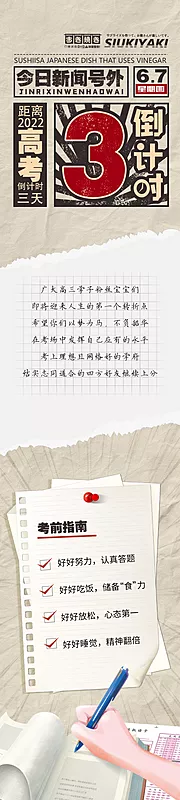 SIUKIYAKI
SUSHIISA JAPANESE DISH THAT USES VINEGAR
今日新闻号外
JINRIXINWENHAOWAI
6.7
星期四
距离
2022
高考
倒计时
三天
3
倒计时
广大高三学子粉饭宝宝们
即将迎来人生的第一个转折点
希望你们以梦为马，不负韶华
在考场中发挥自己应有的水平
考上理想且网络好的学府
结实志同道合的四方好友继续上分
考前指南
好好努力，认真答题
好好吃饭，储备“食”力
好好放松，心态第一
好好睡觉，精神翻倍